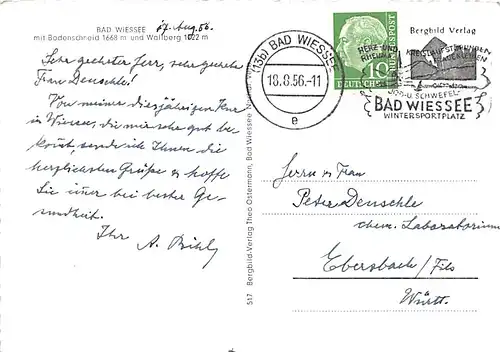 BAD WIESSEE
17. Aug. 56.
mit Bodenschneid 1668 m und Wallberg 1722 m
Sehr geehrter Herr, sehr geehrte
Frau Denschle!
Von meiner diesjährigen Kur
in Wiessee, die mir sehr gut be
kommt, sende ich Ihnen die
herzlichsten Grüße & hoffe
Sie immer bei bester Ge-
sundheit.
Ihr A.
517 Bergbild-Verlag Theo Ostermann, Bad Wiessee
(13b) BAD WIESSEE
18.8.56.-11
e
10
DEUTSCHE BUNDESPOST
Bergbild Verlag
HERZ- UND KREISLAUFSTÖRUNGEN
RHEUMA
JOD- u. SCHWEFEL-
BAD WIESSEE
WINTERSPORTPLATZ
Herrn & Frau
Peter Denschle
chem. Laboratorium
Ebersbach/Fils
Württ.